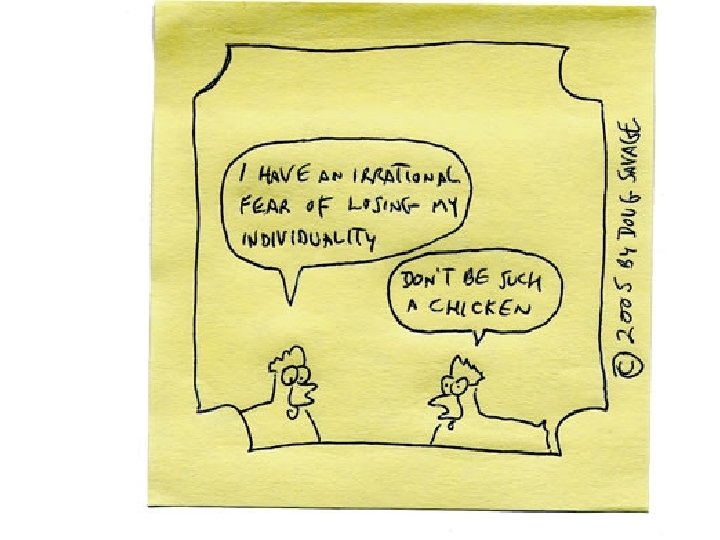 I HAVE AN IRRATIONAL
FEAR OF LOSING MY
INDIVIDUALITY
DON'T BE SUCH
A CHICKEN
© 2005 BY DOUG SAVAGE